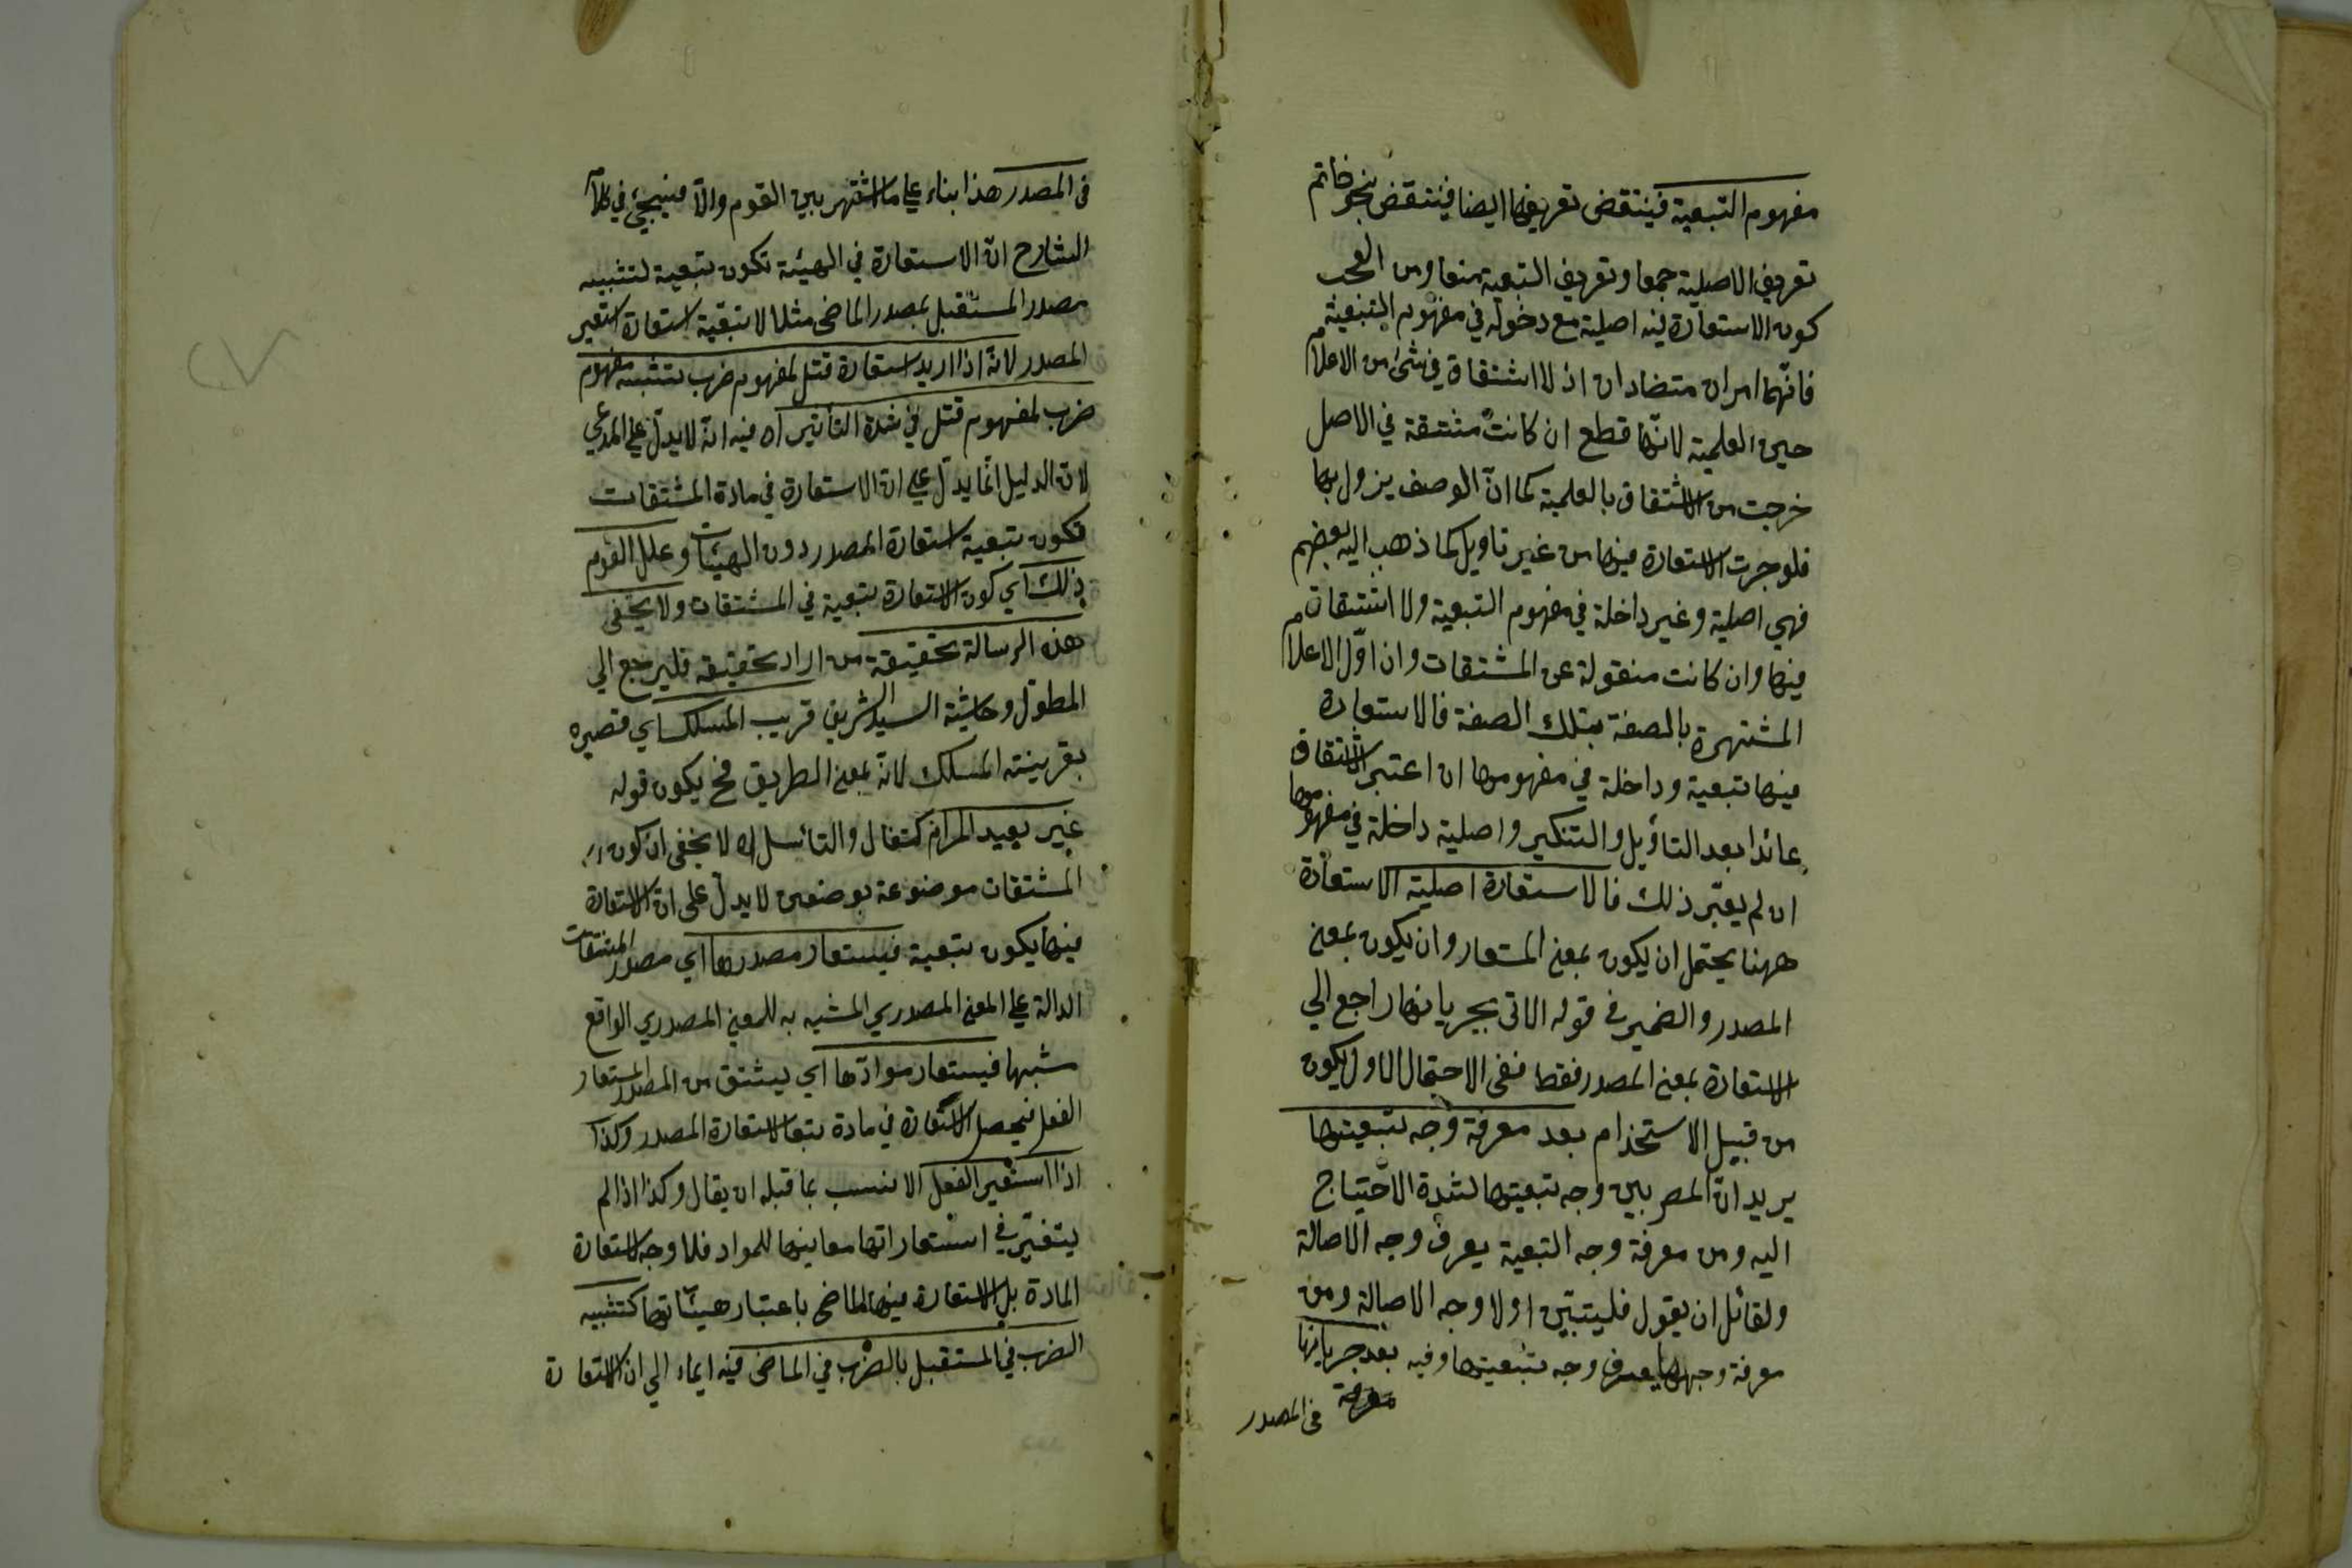 مفهوم التبعية فينتقض تعريفها ايضا فينتقض بنحو خاتم
تعريف الاصلية جمعا وتعريف التبعية منعا ومن العجب
كون الاستعارة فيه اصلية مع دخوله في مفهوم التبعية
فانّهما امران متضادان اذ لا اشتقاق في شئ من الاعلام
حين العلمية لانّها قطع ان كانت مشتقة في الاصل
خرجت من الاشتقاق بالعلمية كما انّ الوصف يزول بها
فلو جرت الاستعارة فيها من غير تاويل كما ذهب اليه بعضهم
فهي اصلية وغير داخلة في مفهوم التبعية ولا اشتقاق
فيها وان كانت منقولة عن المشتقات وان اوّل الاعلام
المشتهرة بالصفة بتلك الصفة فالاستعارة
فيها تبعية وداخلة في مفهومها ان اعتبر الاشتقاق
عائدا بعد التأويل والتنكير واصلية داخلة في مفهومها
ان لم يعتبر ذلك فالاستعارة اصلية الاستعارة
ههنا يحتمل ان يكون بمعنى المستعار وان يكون بمعنى
المصدر والضمير في قوله الاتى بجريانها راجع الي
الاستعارة بمعنى المصدر فقط ففى الاحتمال الاول يكون
من قبيل الاستخدام بعد معرفة وجه تبعيتها
يريد انّ المص بين وجه تبعيتها لشدة الاحتياج
اليه ومن معرفة وجه التبعية يعرف وجه الاصالة
ولقائل ان يقول فليتبيّن اولا وجه الاصالة ومن
معرفة وجهها يعرف وجه تبعيتها وفيه بعد جريانها
معرفة في المصدر
في المصدر هذا بناء علي ما اشتهر بين القوم والاّ فيجئ في كلام
الشارح انّ الاستعارة في الهيئة تكون بتبعية لتشبيه
مصدر المستقبل بمصدر الماضى مثلا لا بتبعية استعارة استعير
المصدر لانّه اذا اريد استعارة قتل لمفهوم ضرب بتشبيه مفهوم
ضرب لمفهوم قتل في شدة التأثير اه فيه انّه لا يدلّ علي المدعي
لان الدليل انّما يدلّ علي انّ الاستعارة في مادة المشتقات
تكون بتبعية استعارة المصدر دون الهيئات وعلل القوم
ذلك اي كون الاستعارة بتبعية في المشتقات ولا يخفى
هذه الرسالة تحقيقة من اراد تحقيقه فليرجع الي
المطوّل وحاشية السيد الشريف قريب المسلك اي قصيره
بقرينة المسلك لانّه بمعنى الطريق فح يكون قوله
غير بعيد المرام كتفال والتأسل اه لا يخفى ان كون
المشتقات موضوعة بوضعين لا يدلّ على انّ الاستعارة
فيها يكون بتبعية فيستعار مصدرها اي مصدر المشتقات
الدالة علي المعنى المصدري المشبه به للمعنى المصدري الواقع
شبها فيستعار موادّها اي يشتق من المصدر المستعار
الفعل فيحصل الاستعارة في مادة بتبع الاستعارة المصدر وكذا
اذا استعير الفعل الانسب بما قبله ان يقال وكذا اذا لم
يتغيّر في استعاراتها معاينها للمواد فلا وجه لاستعارة
المادة بل الاستعارة فيها للماضى باعتبار هيئاتها كتشبيه
الضرب في المستقبل بالضرب في الماضى فيه ايماء الي ان الاستعارة